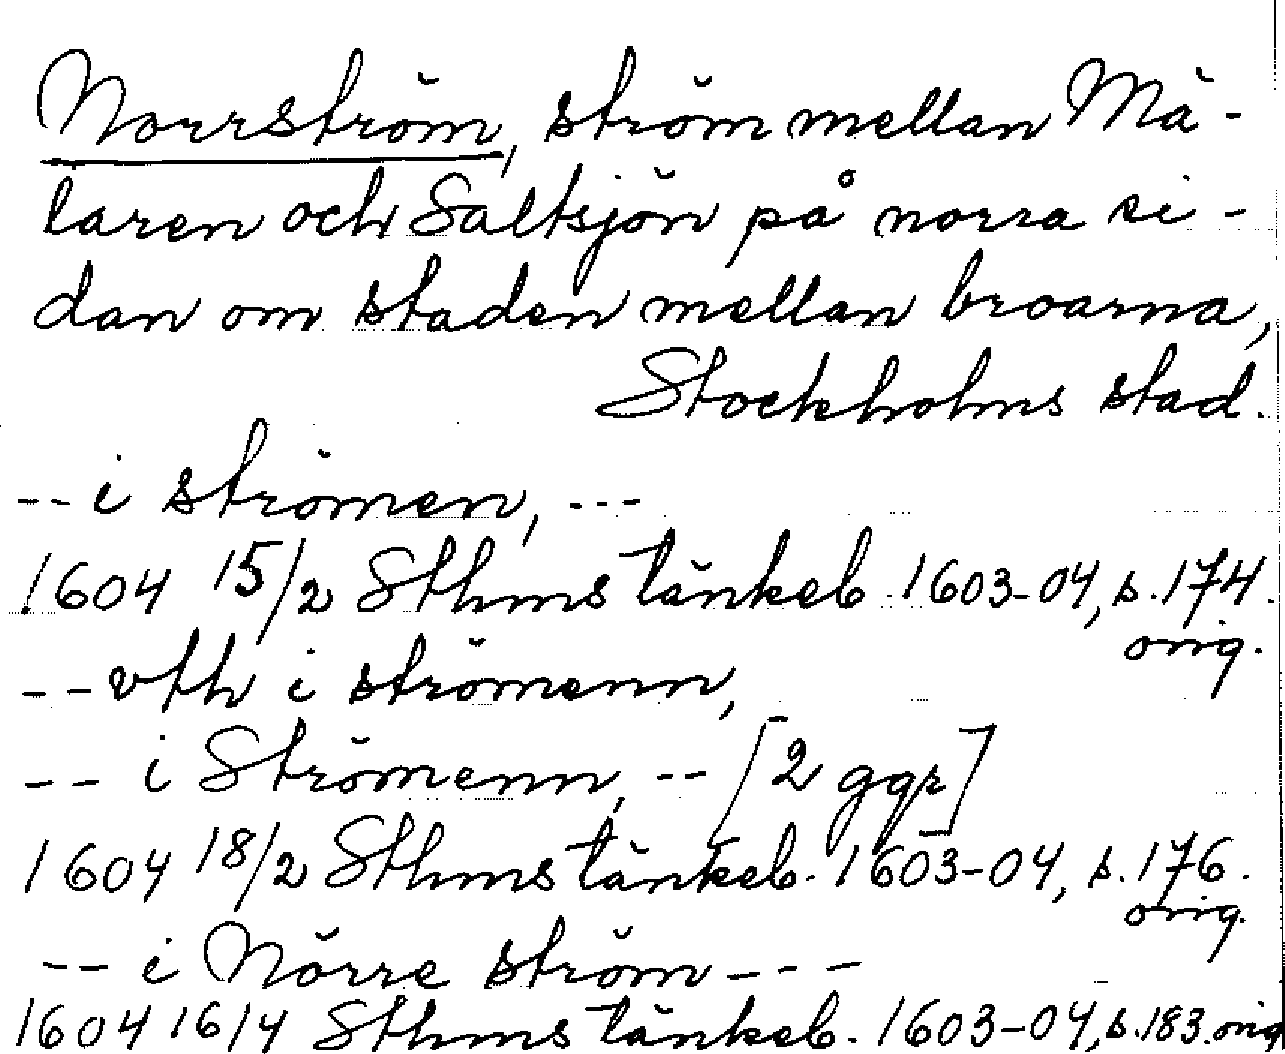 Norrström, ström mellan Mä-
laren och Saltsjön på norra si-
dan om staden mellan broarna,
Stockholms stad.
-- i strömen, ---
1604 15/2 Sthms tänkeb. 1603-04, s. 174.
orig.
-- vth i strömenn,
-- i Strömenn, -- [2 ggr]
1604 18/2 Sthms tänkeb. 1603-04, s. 176.
orig.
-- i Nörre ström ---
1604 16/4 Sthms tänkeb. 1603-04, s. 183. orig